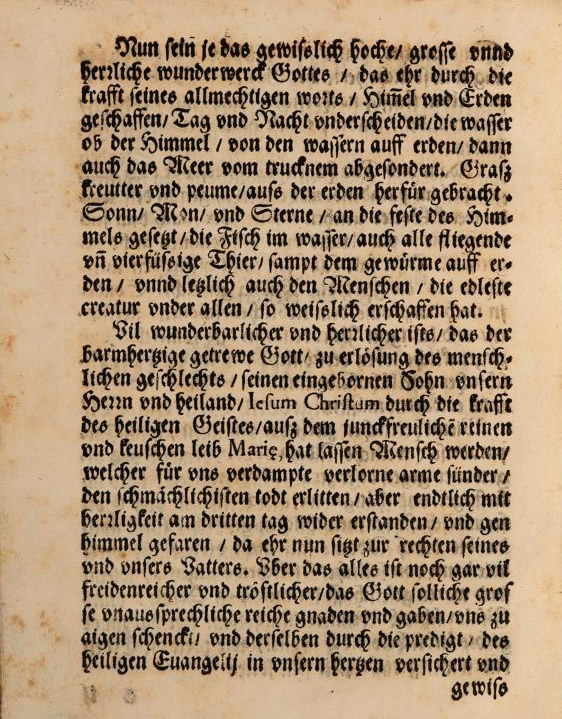 Nun sein je das gewißlich hoche/ grosse vnnd
herrliche wunderwerck Gottes / das ehr durch die
krafft seines allmechtigen worts / Him̃el vnd Erden
geschaffen/ Tag vnd Nacht vnderscheiden/die wasser
ob der Himmel / von den wassern auff erden/ dann
auch das Meer vom trucknem abgesondert. Grasz
kreutter vnd peume/auss der erden herfür gebracht.
Sonn/ Mon/ vnd Sterne / an die feste des Him-
mels gesetzt/die Fisch im wasser/auch alle fliegende
vñ vierfüssige Thier/ sampt dem gewürme auff er-
den / vnnd letzlich auch den Menschen / die edleste
creatur vnder allen / so weisslich erschaffen hat.
Vil wunderbarlicher vnd herrlicher ists/ das der
barmhertzige getrewe Gott/ zu erlösung des mensch-
lichen geschlechts / seinen eingebornen Sohn vnsern
Herrn vnd heiland/ Iesum Christum durch die krafft
des heiligen Geistes/ausz dem junckfreulichē reinen
vnd keuschen leib Marię, hat lassen Mensch werden/
welcher für vns verdampte verlorne arme sünder /
den schmächlichisten todt erlitten/ aber endtlich mit
herrligkeit am dritten tag wider erstanden/ vnd gen
himmel gefaren / da ehr nun sitzt zur rechten seines
vnd vnsers Vatters. Vber das alles ist noch gar vil
freidenreicher vnd tröstlicher/das Gott solliche gros
se vnaussprechliche reiche gnaden vnd gaben/ vns zu
aigen schenckt/ vnd derselben durch die predigt / des
heiligen Euangelij in vnsern hertzen versichert vnd
gewiss